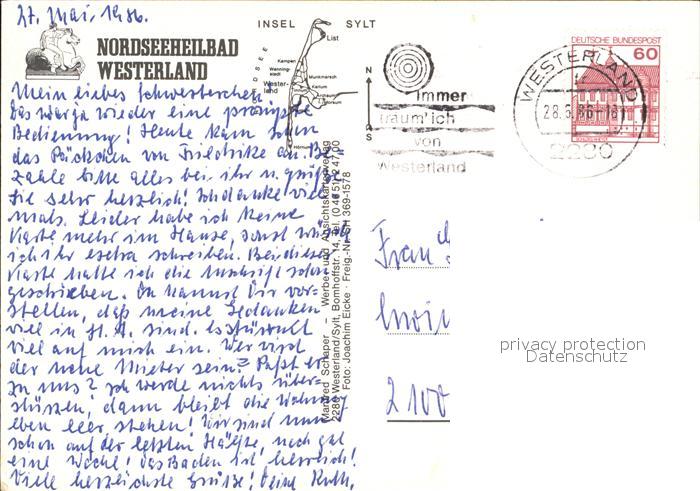 27. Mai, 1986.
NORDSEEHEILBAD
WESTERLAND
INSEL SYLT
List
Kampen
Wenning-
stedt
Wester-
land
Munkmarsch
Keitum
Morsum
Hörnum
N
S
Immer
träum' ich
von
Westerland
WESTERLAND
2280
DEUTSCHE BUNDESPOST
60
Mein liebes Schwesterchen
Das war ja wieder eine prompte
Bedienung! Heute kam schon
das Päckchen von Friedrike an. Be-
zahle bitte alles bei ihr u. grüße
Sie sehr herzlich! Ich danke viel
mals. Leider habe ich keine
Karte mehr im Hause, sonst würde
ich ihr extra schreiben. Bei dieser
Karte hatte ich die Anschrift schon
geschrieben. Du kannst Dir vor-
stellen, daß meine Gedanken
viel in St. A. sind. Es stürmt
viel auf mich ein. Wer wird
der neue Mieter sein? Paßt er
zu uns? Ich werde nichts über-
stürzen, dann bleibt die Wohnung
eben leer stehen! Wir sind nun
schon auf der letzten Hälfte, noch gut
eine Woche! Das Baden ist herrlich!
Viele herzlichste Grüße! Deine Ruth.
Manfred Schaper — Werbe- und Ansichtskartenverlag
2280 Westerland/Sylt, Bomhoffstr. 14, Tel. (0 46 51) 2 47 00
Foto: Joachim Eicke · Freig.-Nr. SH 369-1578
Frau
2100
privacy protection
Datenschutz